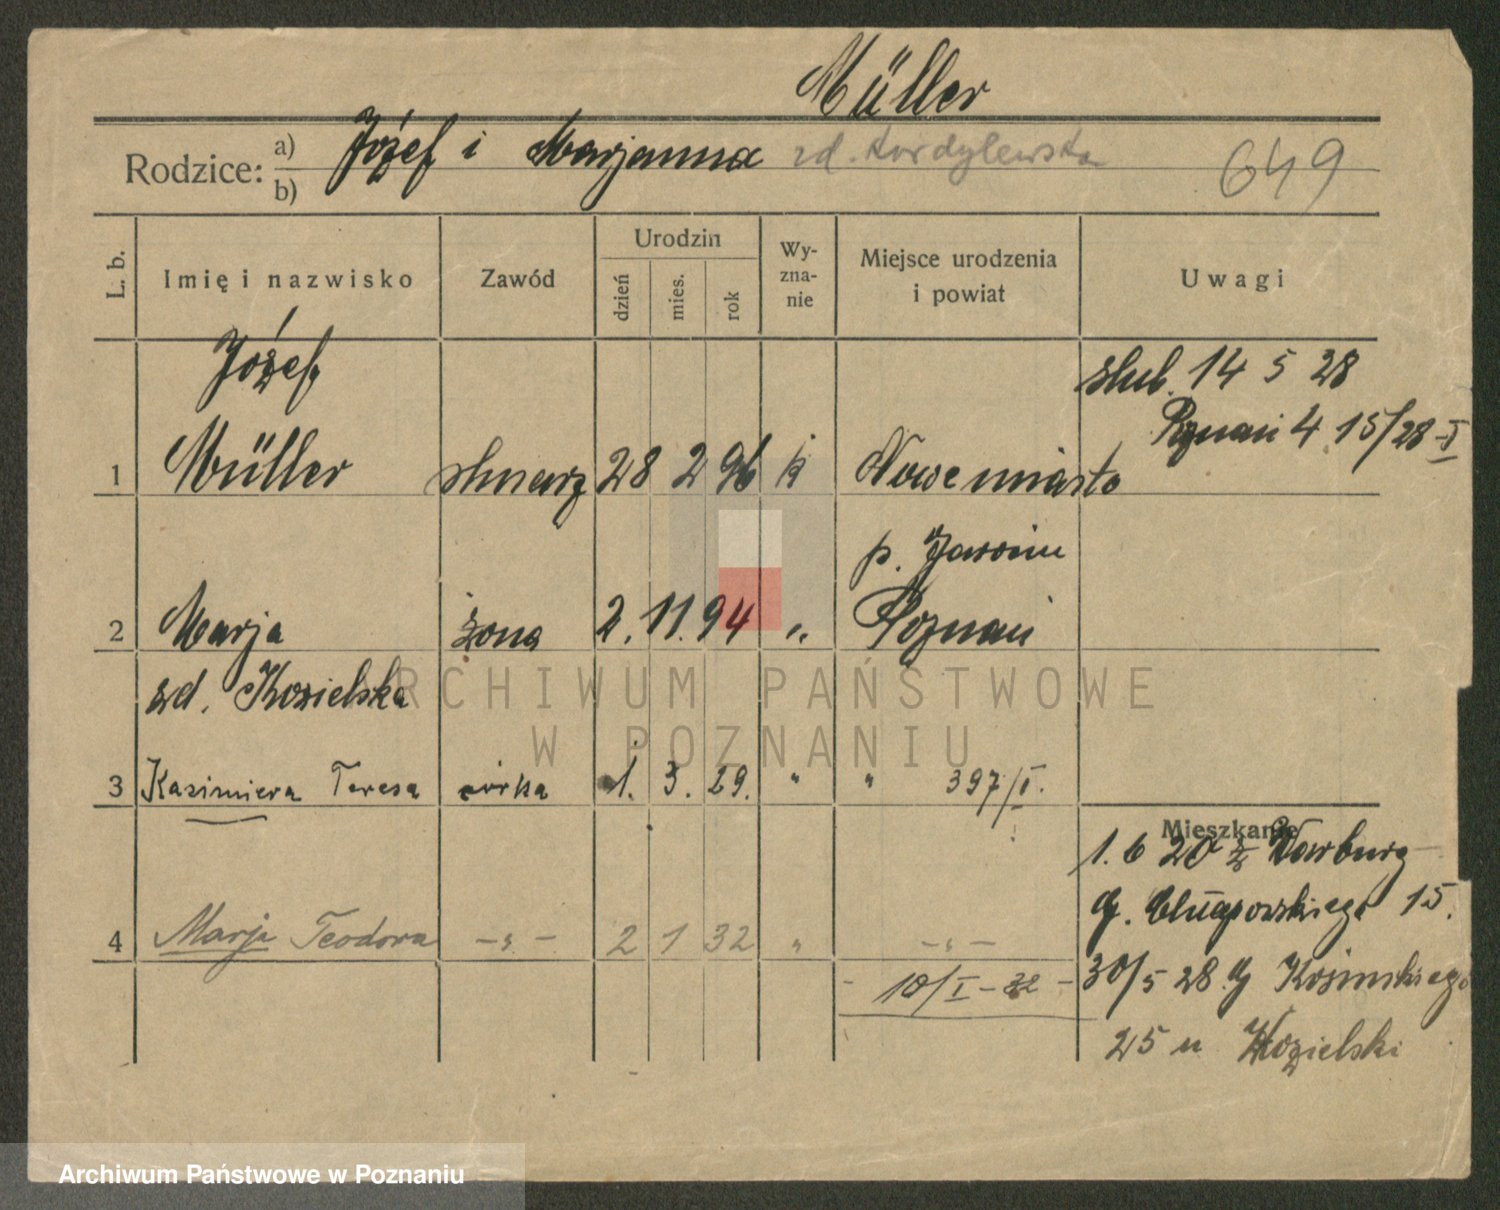 Müller
Rodzice: a) b) Józef i Marjanna zd. Kordylewska 649
L. b. Imię i nazwisko Zawód Urodzin dzień mies. rok Wyznanie Miejsce urodzenia i powiat Uwagi
Józef
ślub. 14 5 28
Poznań 4 15/28-I
1 Müller ślusarz 28 2 96 k Nowemiasto
p. Jarocin
2 Marja żona 2. 11. 94 „ Poznań
zd. Kozielska
3 Kazimiera Teresa córka 1. 3. 29. „ „ 397/I.
Mieszkanie
1. 6 20 z Warburg
G. Chłapowskiego 15.
4 Marja Teodora -„- 2 1 32 „ -„-
- 10/I - 32 -
30/5 28 G Kosinskiego
25 u Kozielski
ARCHIWUM PAŃSTWOWE
W POZNANIU
Archiwum Państwowe w Poznaniu